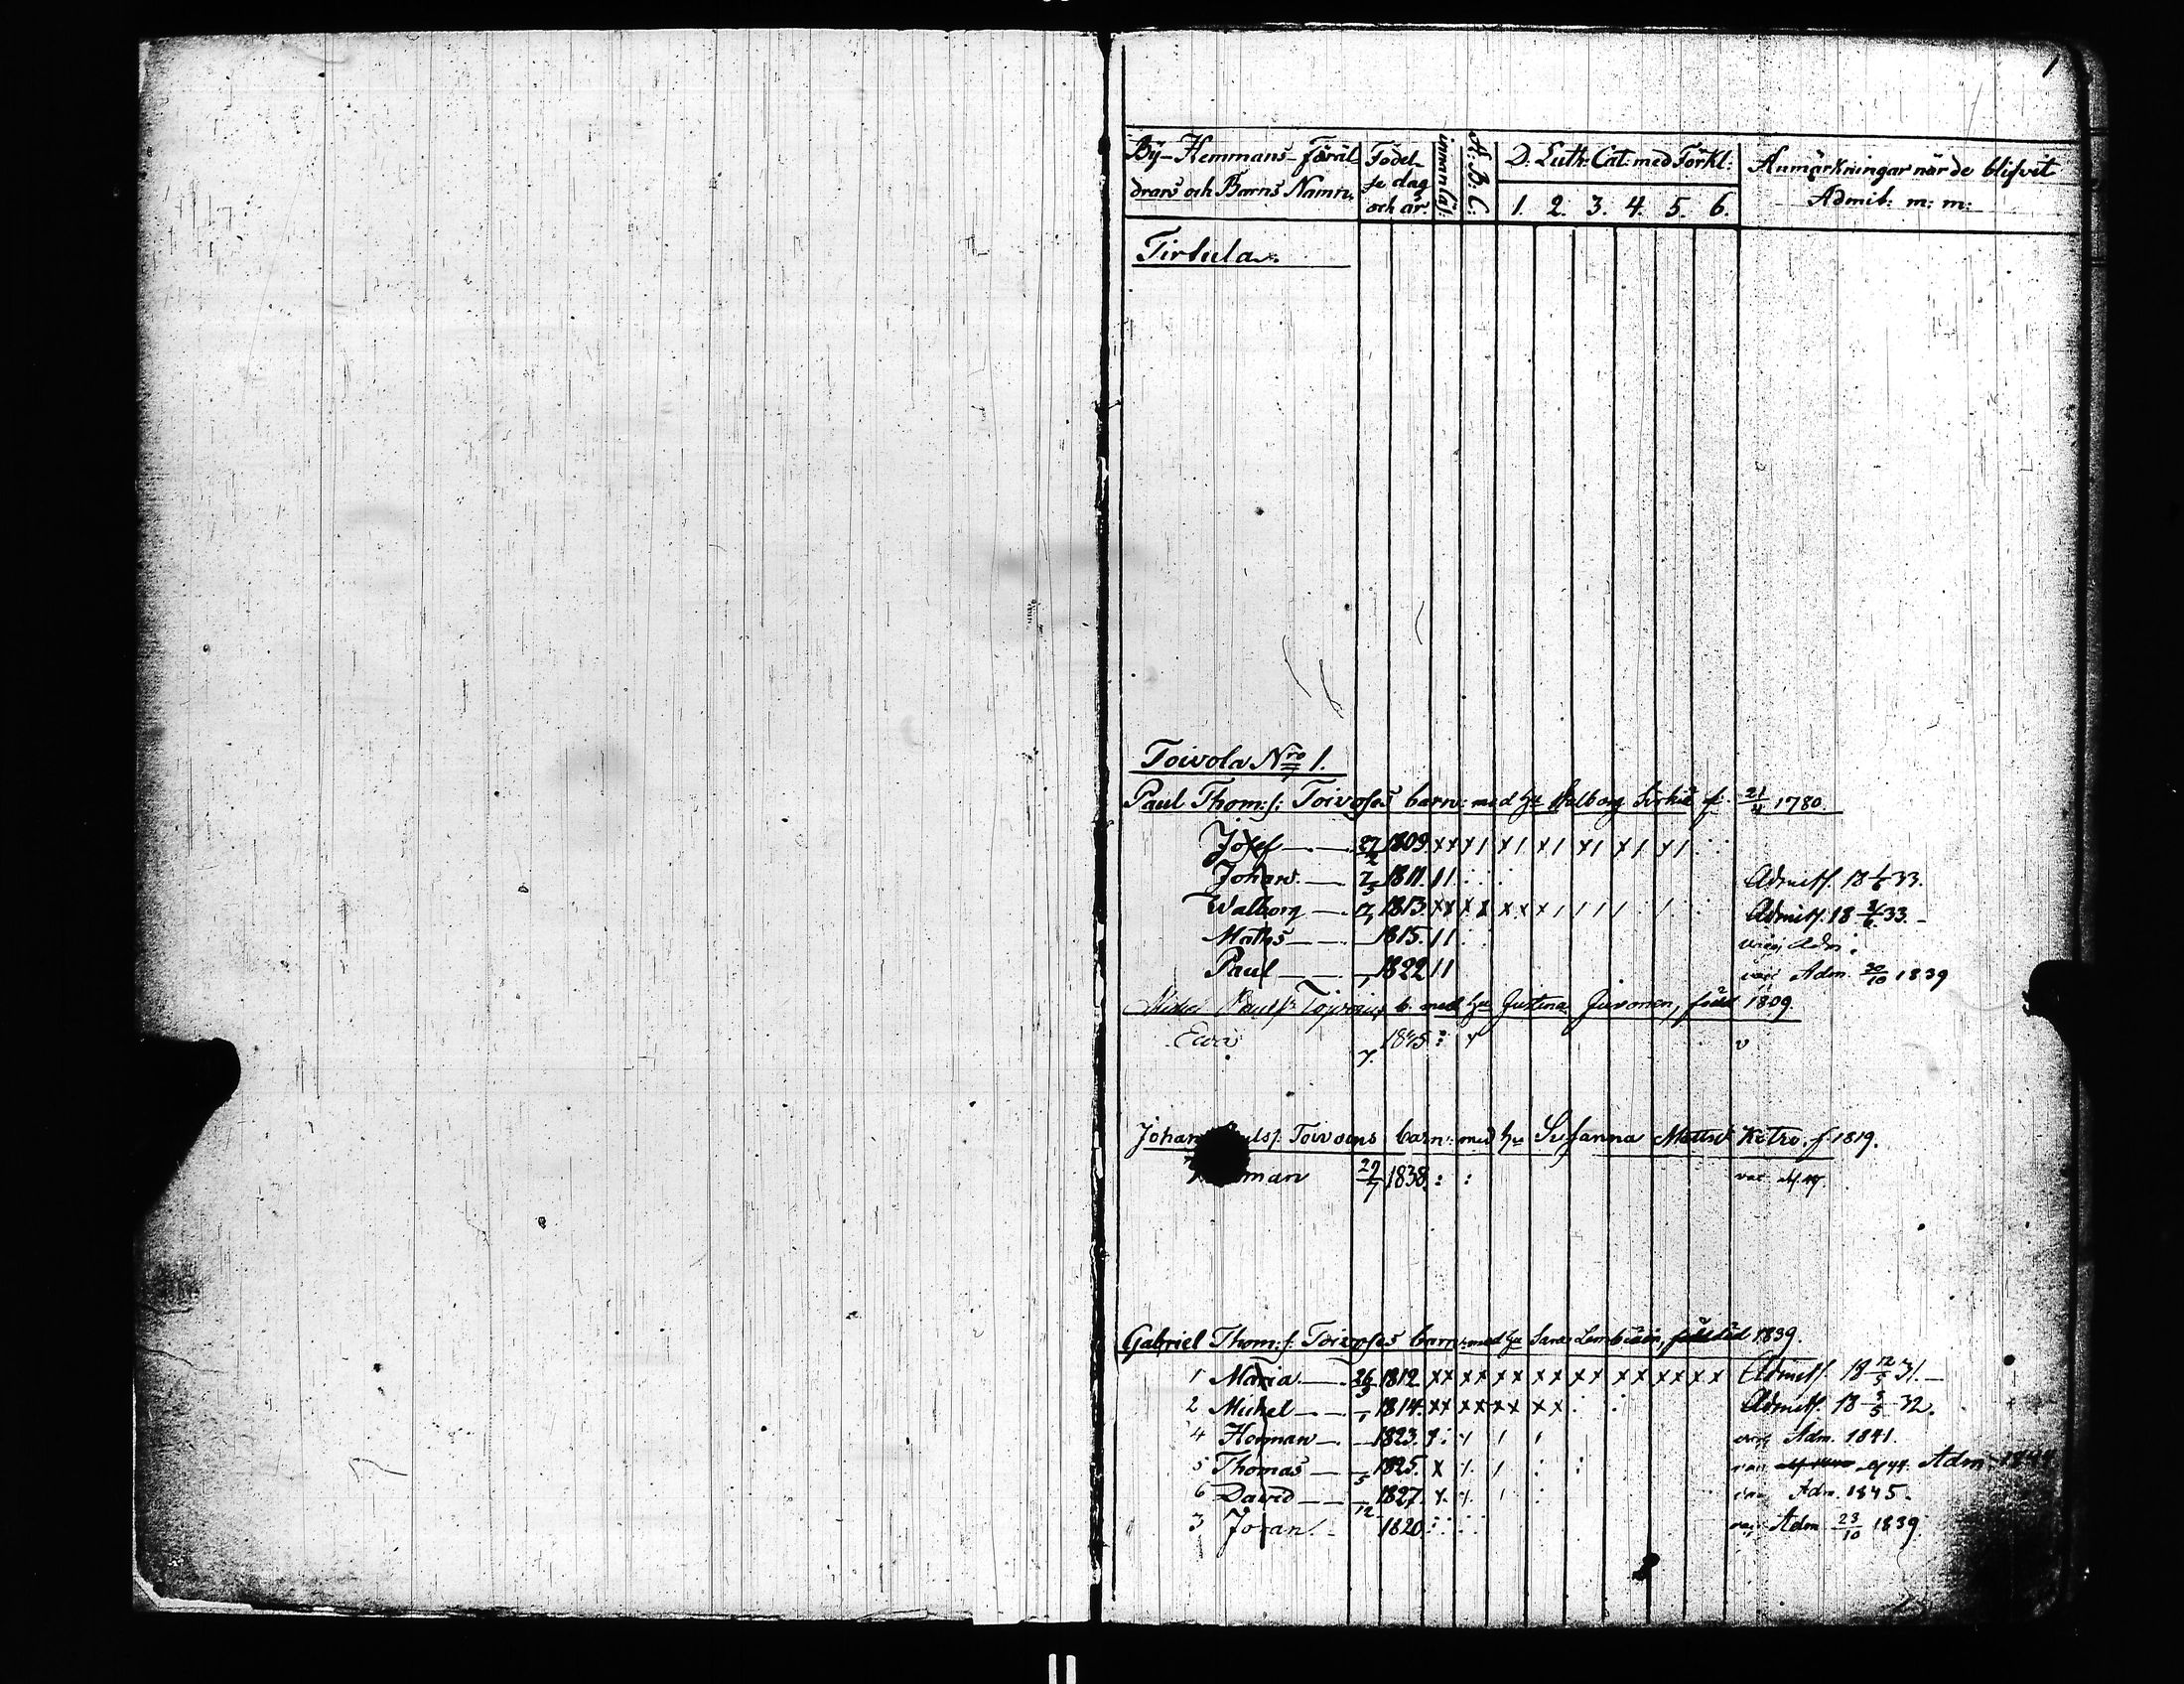 1
By-Hemmans-Föräl
drars och Barns Namn.
Födel
se dag
och år.
innanläs:
A:B:C:
D. Luth: Cat: med Förkl:
1. 2. 3. 4. 5. 6.
Anmärkningar när de blifvit
Admit: m: m:
Tirkula
Toivola Nro 1.
Paul Thom:s: Toivoses barn: med hu Walborg Sirkiä f. 21/4 1780.
Josef 27/2 1809. xx x1 x1 x1 x1 x1 x1
Johan 2/5 1811. 11 Admitt. 18 33.
Walborg 1813. xx xx xx x1 11 1 1 Admitt. 18 33.
Maths 1815. 11 Adm:
Paul 1822 11 Adm. 30/10 1839
Michel Pauls: Toivoins b. med hu Justina Juvonen, född 1809.
Eva 7. 1845
Johan Pauls: Toivoins barn: med hu Susanna Mattsd: f. 1819.
man 29/7 1838. vac
Gabriel Thom:s: Toivoses barn: med hu Sara död 1839.
1 Maria 26/3 1812 xx xx xx xx xx xx xx xx Admitt. 18 12/5 31.
2 Michel 1814. xx xx xx xx Admitt. 18 3/5 32.
4 Herman 1823. Adm. 1841.
5 Thomas 1825. x Adm: 1844
6 David 12 1827. Adm. 1845.
3 Johan 1820 Adm 23/10 1839.